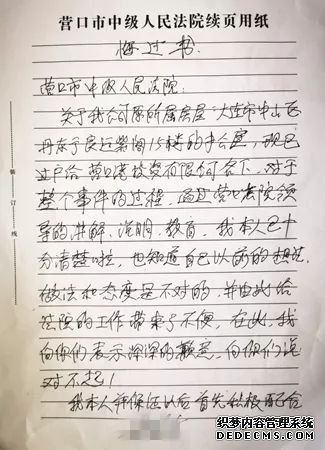 营口市中级人民法院续页用纸
悔过书
营口市中级人民法院：
关于我公司原所属房屋"大连市中山区
丹东于良运街间15楼的半公室，现已
过户给营口港投资有限公司名下，对于
整个事件的过程，通过营口法院领
导的讲解、说明、教育，我本人已十
分清楚啦，也知道自己以前的想法
做法和态度是不对的，并由此给
法院的工作带来了不便，在此，我
向你们表示深深的歉意，向你们说
对不起！
我本人并保证以后首先积极配合
装订线
织梦内容管理系统
DEDECMS.COM